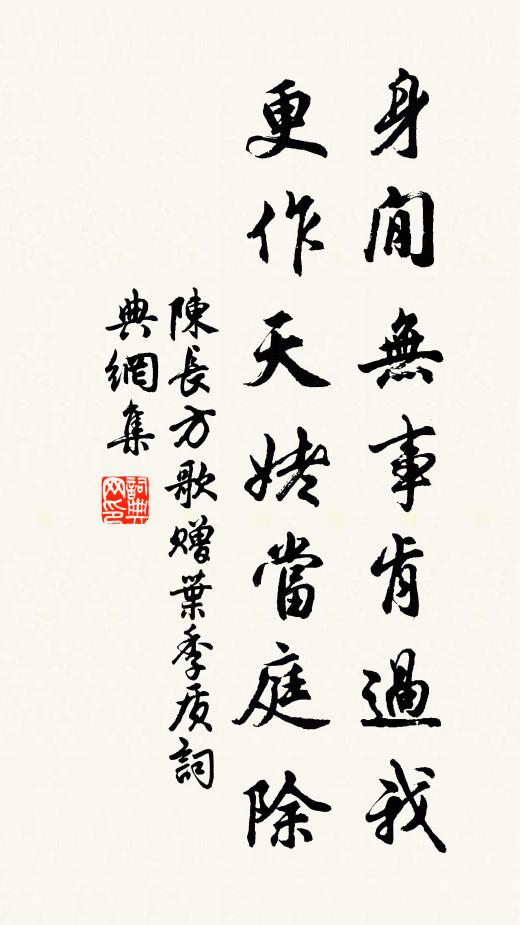 身閒無事肯過我
更作天姥當庭除
陳長方歌贈葉季质詞
典網集
詞典网印